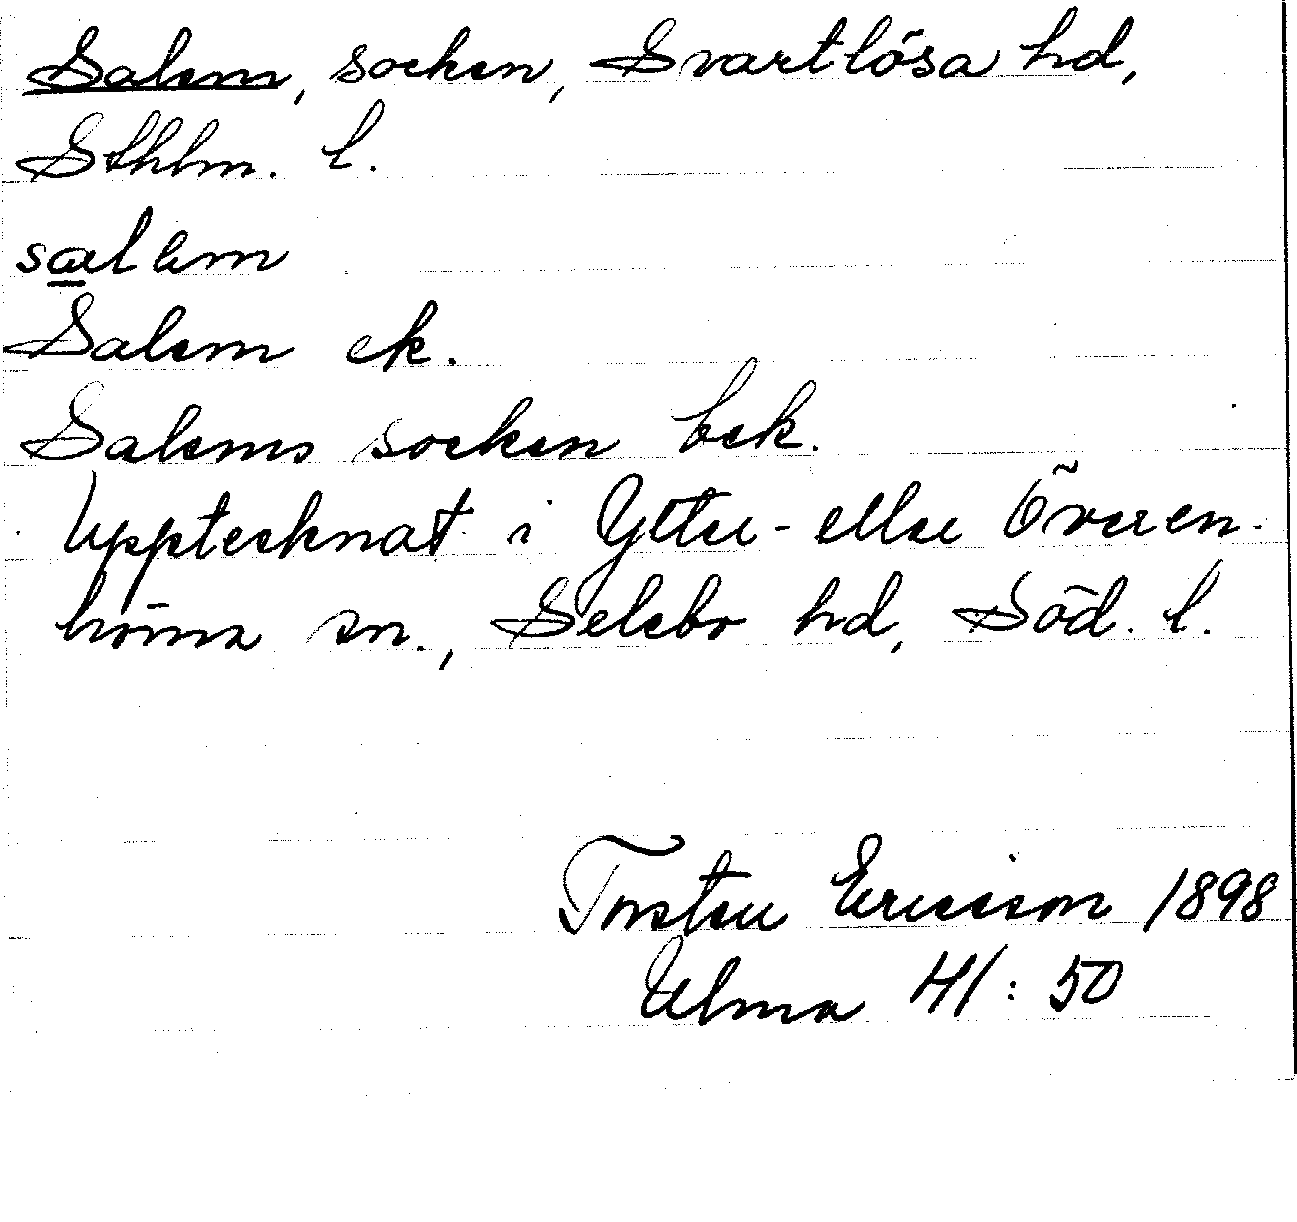 Salem, socken, Svartlösa hd,
Sthlm. l.
salem
Salem ek.
Salems socken bek.
Upptecknat i Ytter- eller Överen-
hörna sn., Selebo hd, Söd. l.
Torsten Ericsson 1898
Ulma 41:50